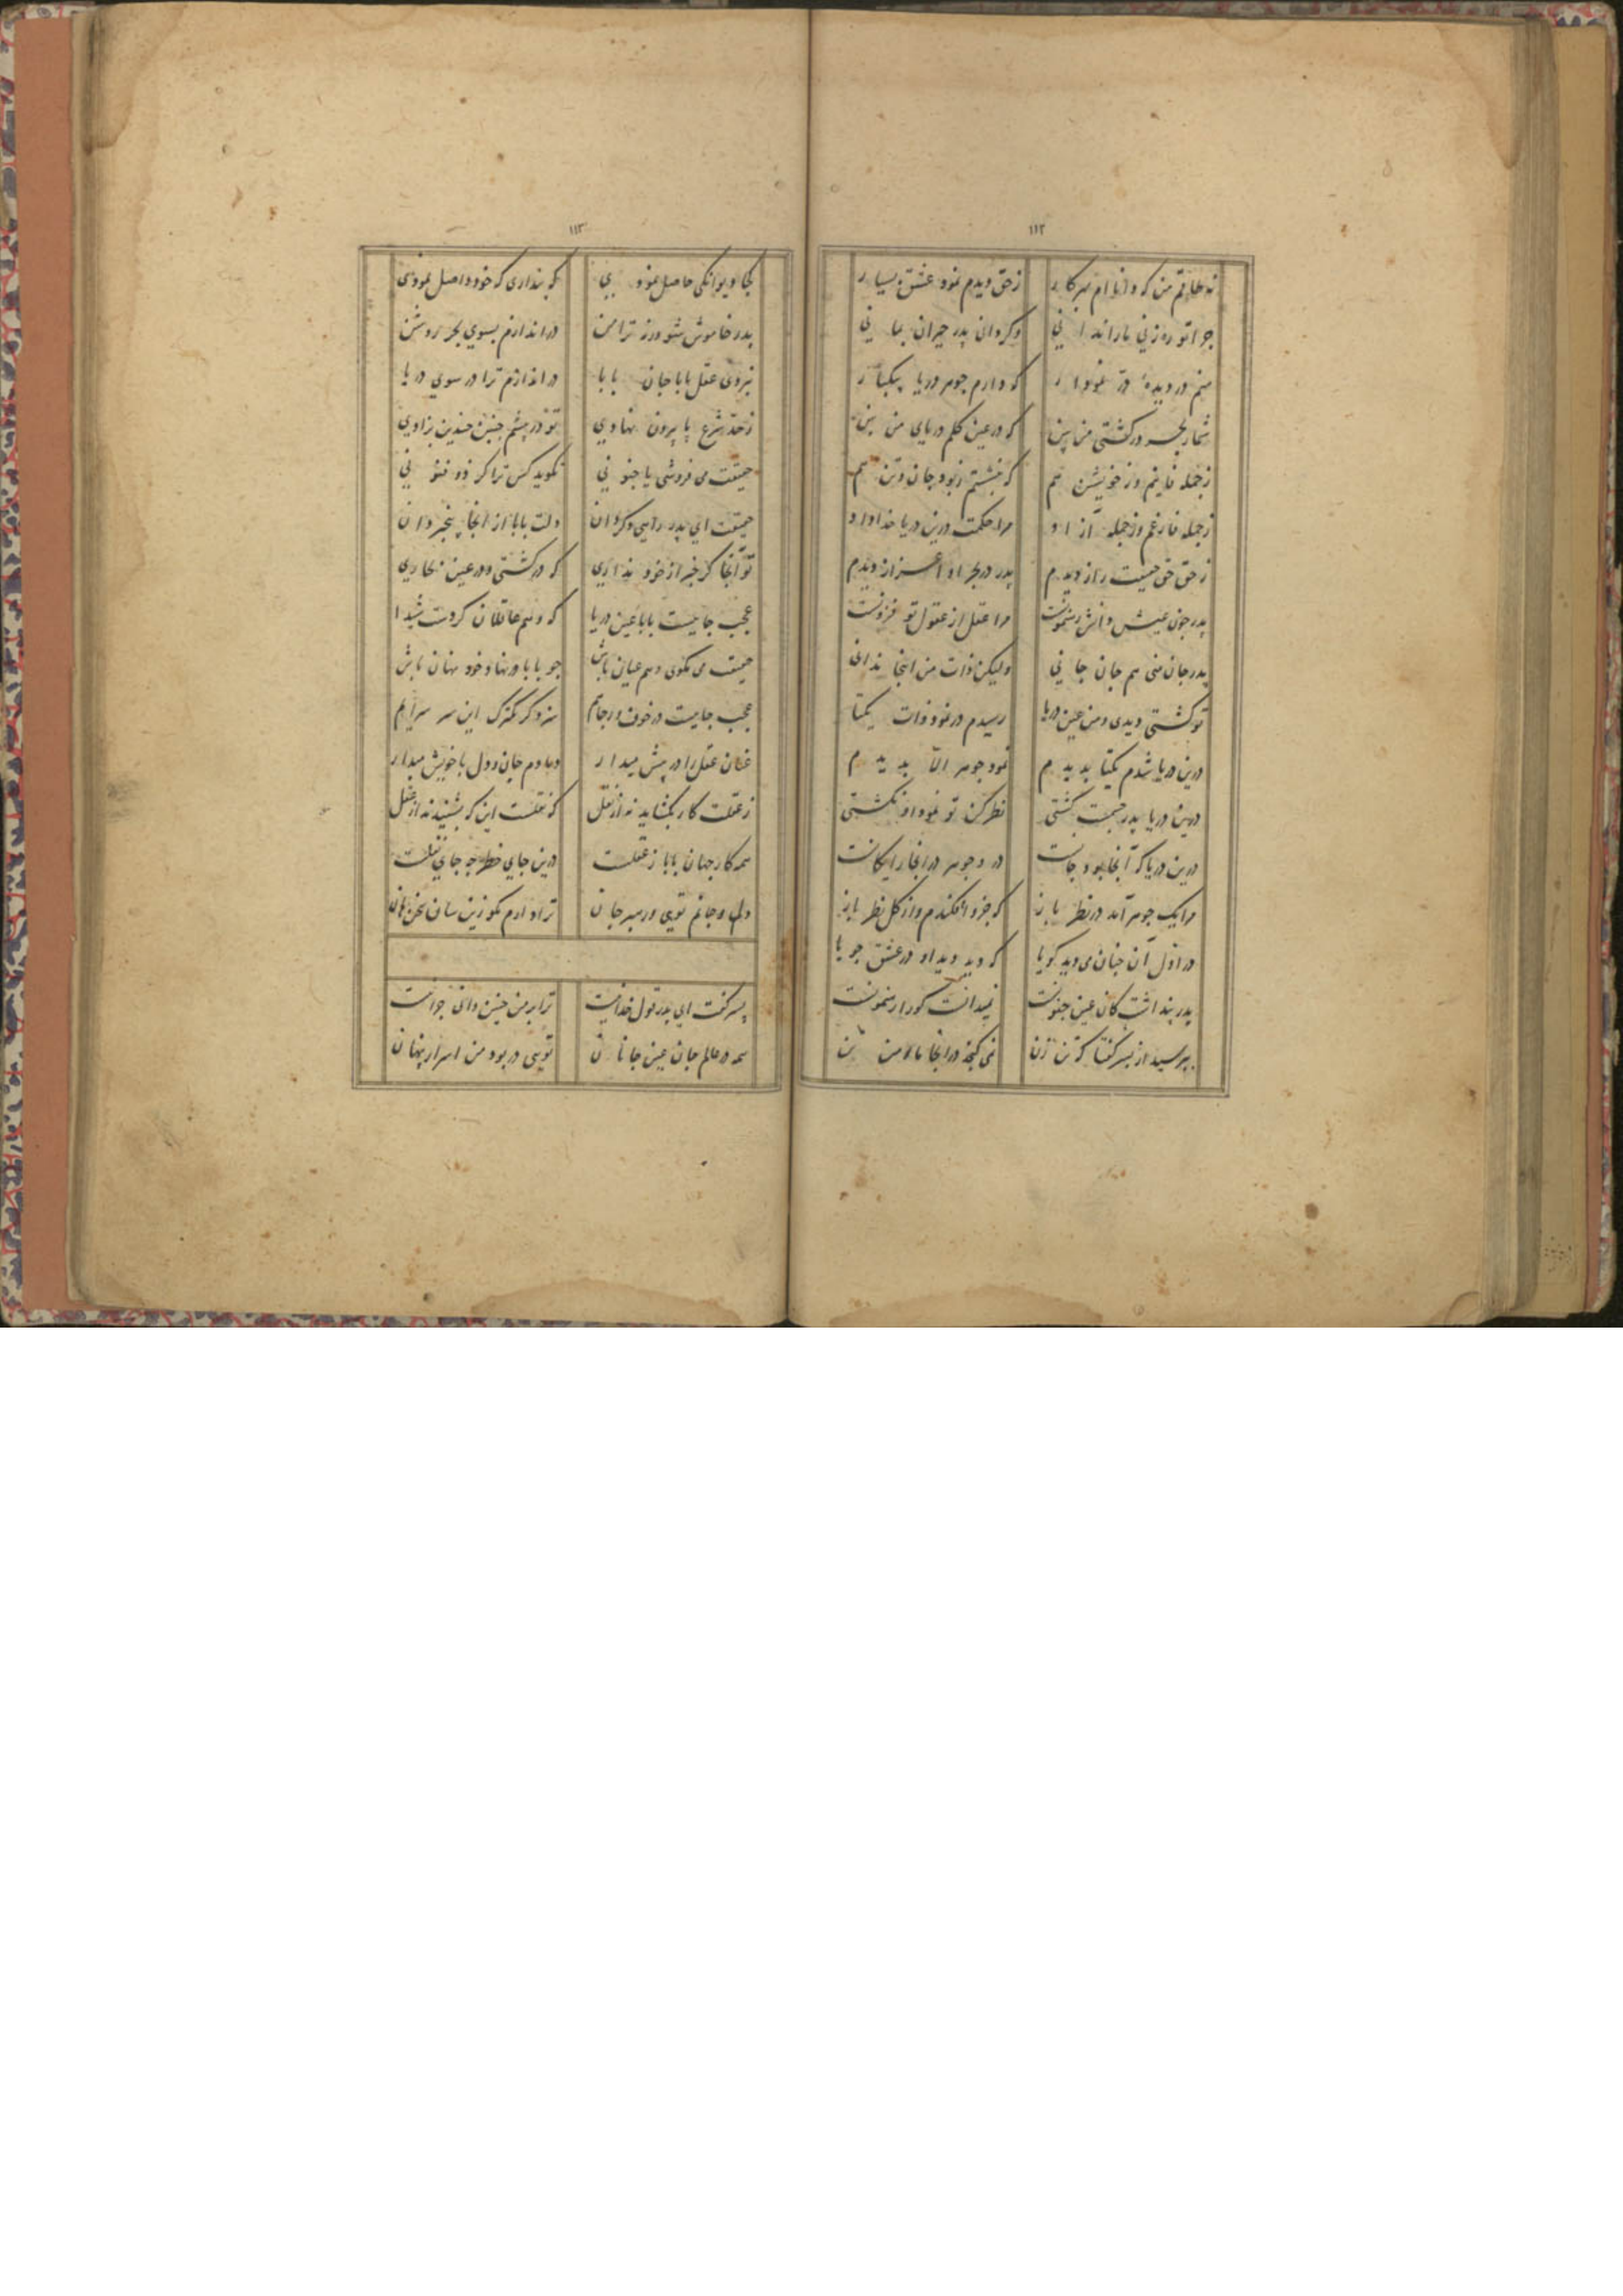 ۱۱۲
نه طاقتم من که دانا ام بهر کار زحق دیدم نمود عشق بسیار
چرا تو رمزنی ما را ندانی وکر دانی پدر حیران بمانی
منم در دیده در نمودار که دارم جوهر دریا بیکبار
شمار بحر در کشتی من بین که در عین کلم دریای من بین
زجمله فارغم وز خویشتن هم که بنشستم زبود جان وتن هم
زجمله فارغم وز جمله آزاد مرا حکمت درین دریا خدا داد
زحق حق حقیقت راز دیدم پدر در بحر او اعزاز دیدم
پدر چون عیش دانش رهنمونست مرا عقل از عقول تو فزونست
پدر جان منی هم جان جانی ولیکن ذات من اینجا ندانی
تو کشتی دیدی ومن عین دریا رسیدم در نمود ذات یکتا
درین دریا شدم یکتا بدیدم نمود جوهر الا بدیدم
درین دریا پدر حقیقت کشتی نظر کن تو نمود او بکشتی
درین دریا که آنجا بود جانست در و جوهر در انجا رایکانست
مرا یک جوهر آمد در نظر باز که جزو افکندم واز کل نظر باز
در اول آن چنان می دید کویا که دید دید او در عشق جویا
پدر پنداشت کان عین جنونست نمیدانست کو را رهنمونست
بپرسید از پسر کفتا که تن زن نمی کنجد در انجا ما ومن تن
۱۱۳
کجا دیوانکی حاصل نمودی که پنداری که خود واصل نمودی
پدر خاموش شو ورنه ترا من در اندازم بسوی بحر روشن
نبردی عقل بابا جان بابا در اندازم ترا در سوی دریا
زحد شرع پا بیرون نهادی تو در چشم چنین چندین زادی
حقیقت می فروشی یا جنونی نکوید کس ترا کر ذو فنونی
حقیقت ای پدر راهی وکر دان دلت بابا از انجا بیخبر دان
تو آنجا کر خبر از خود نداری که در کشتی ودر عین بحاری
عجب جاییست بابا عین دریا که وهم عاقلان کردست شیدا
حقیقت می نکوی وهم عیان باش چو بابا در نهاد خود نهان باش
عجب جاییست در خوف ورجایم سزد کر یکترک این سر سرایم
عنان عقل را در پیش میدار دمادم جان ودل با خویش میدار
زعقلت کار بکشاید نه از نقل که عقلست این که بشنید نه از عقل
همه کار جهان بابا زعقلست درین جای خطر چه جای نقلست
دلم وجانم توی ورهبر جان ترا دارم مکو زین سان سخن هان
پسر کفت ای پدر قول خدایست ترا بر من چنین دانی چرا نیست
همه در عالم جان عین جانان تویی در بود من اسرار پنهان